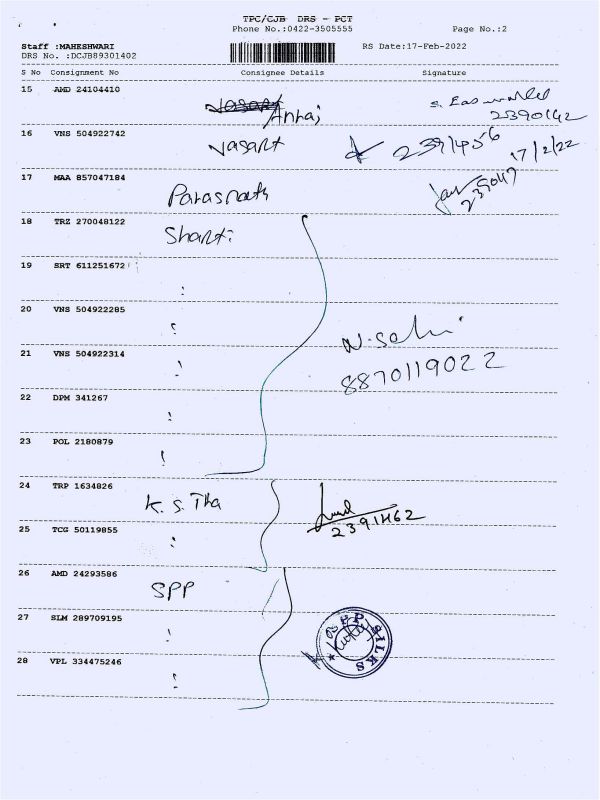 TPC/CJB DRS - PCT
Phone No.:0422-3505555 Page No.:2
Staff :MAHESHWARI RS Date:17-Feb-2022
DRS No. :DCJB89301402
S No Consignment No Consignee Details Signature
15 AMD 24104410
2390142
16 VNS 504922742 Vasant 2391456 17/2/22
17 MAA 857047184 Parasnath
18 TRZ 270048122 Shanti
19 SRT 611251672
20 VNS 504922285
21 VNS 504922314 8870119022
22 DPM 341267
23 POL 2180879
24 TRP 1634826 K. S. Tha
25 TCG 50119855
26 AMD 24293586 SPP
27 SLM 289709195 SPP SILKS
28 VPL 334475246